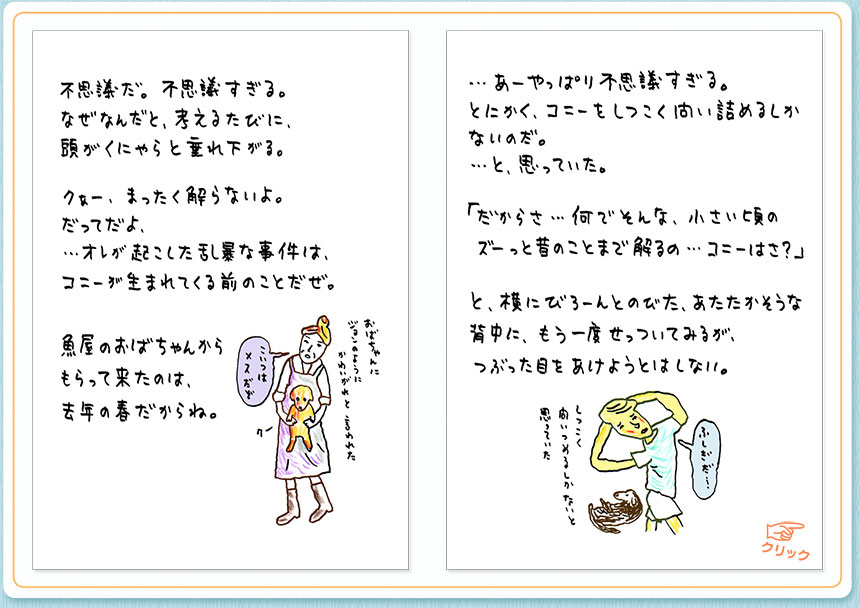 不思議だ。不思議すぎる。
なぜなんだと、考えるたびに、
頭がくにゃらと垂れ下がる。
クぁー、まったく解らないよ。
だってだよ、
…オレが起こした乱暴な事件は、
コニーが生まれてくる前のことだぜ。
魚屋のおばちゃんから
もらって来たのは、
去年の春だからね。
こいつは
メスだぞ
おばちゃんに
ジョンのように
かわいがれと言われた
クー
…あーやっぱり不思議すぎる。
とにかく、コニーをしつこく問い詰めるしか
ないのだ。
…と、思っていた。
「だからさ…何でそんな、小さい頃の
ズーっと昔のことまで解るの…コニーはさ?」
と、横にびろーんとのびた、あたたかそうな
背中に、もう一度せっついてみるが、
つぶった目をあけようとはしない。
しつこく
問いつめるしかないと
思っていた
ふしぎだ〜
クリック